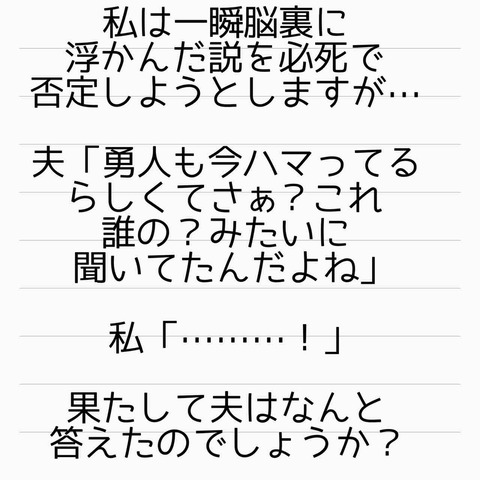 私は一瞬脳裏に
浮かんだ説を必死で
否定しようとしますが…
夫「勇人も今ハマってる
らしくてさぁ？これ
誰の？みたいに
聞いてたんだよね」
私「………！」
果たして夫はなんと
答えたのでしょうか？